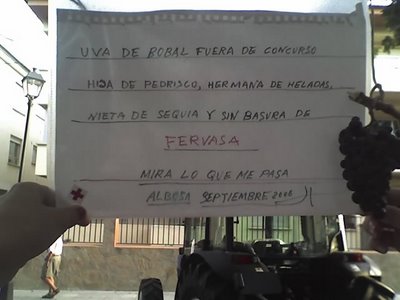 UVA DE BOBAL FUERA DE CONCURSO
HIJA DE PEDRISCO, HERMANA DE HELADAS,
NIETA DE SEQUIA Y SIN BASURA DE
FERVASA
MIRA LO QUE ME PASA
ALBOSA SEPTIEMBRE 2006